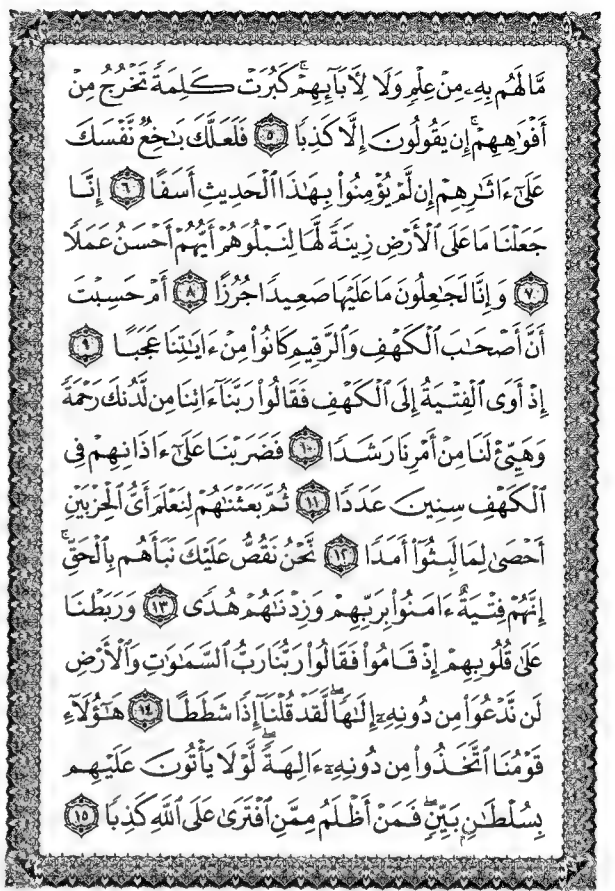 مَّا لَهُم بِهِۦ مِنْ عِلْمٍ وَلَا لِأَبَآئِهِمْ ۚ كَبُرَتْ كَلِمَةً تَخْرُجُ مِنْ
أَفْوَٰهِهِمْ ۚ إِن يَقُولُونَ إِلَّا كَذِبًا ٥ فَلَعَلَّكَ بَـٰخِعٌ نَّفْسَكَ
عَلَىٰٓ ءَاثَـٰرِهِمْ إِن لَّمْ يُؤْمِنُوا۟ بِهَـٰذَا ٱلْحَدِيثِ أَسَفًا ٦ إِنَّا
جَعَلْنَا مَا عَلَى ٱلْأَرْضِ زِينَةً لَّهَا لِنَبْلُوَهُمْ أَيُّهُمْ أَحْسَنُ عَمَلًا
٧ وَإِنَّا لَجَـٰعِلُونَ مَا عَلَيْهَا صَعِيدًا جُرُزًا ٨ أَمْ حَسِبْتَ
أَنَّ أَصْحَـٰبَ ٱلْكَهْفِ وَٱلرَّقِيمِ كَانُوا۟ مِنْ ءَايَـٰتِنَا عَجَبًا ٩
إِذْ أَوَى ٱلْفِتْيَةُ إِلَى ٱلْكَهْفِ فَقَالُوا۟ رَبَّنَآ ءَاتِنَا مِن لَّدُنكَ رَحْمَةً
وَهَيِّئْ لَنَا مِنْ أَمْرِنَا رَشَدًا ١٠ فَضَرَبْنَا عَلَىٰٓ ءَاذَانِهِمْ فِى
ٱلْكَهْفِ سِنِينَ عَدَدًا ١١ ثُمَّ بَعَثْنَـٰهُمْ لِنَعْلَمَ أَىُّ ٱلْحِزْبَيْنِ
أَحْصَىٰ لِمَا لَبِثُوٓا۟ أَمَدًا ١٢ نَّحْنُ نَقُصُّ عَلَيْكَ نَبَأَهُم بِٱلْحَقِّ ۚ
إِنَّهُمْ فِتْيَةٌ ءَامَنُوا۟ بِرَبِّهِمْ وَزِدْنَـٰهُمْ هُدًى ١٣ وَرَبَطْنَا
عَلَىٰ قُلُوبِهِمْ إِذْ قَامُوا۟ فَقَالُوا۟ رَبُّنَا رَبُّ ٱلسَّمَـٰوَٰتِ وَٱلْأَرْضِ
لَن نَّدْعُوَا۟ مِن دُونِهِۦٓ إِلَـٰهًا ۖ لَّقَدْ قُلْنَآ إِذًا شَطَطًا ١٤ هَـٰٓؤُلَآءِ
قَوْمُنَا ٱتَّخَذُوا۟ مِن دُونِهِۦٓ ءَالِهَةً ۖ لَّوْلَا يَأْتُونَ عَلَيْهِم
بِسُلْطَـٰنٍۭ بَيِّنٍ ۖ فَمَنْ أَظْلَمُ مِمَّنِ ٱفْتَرَىٰ عَلَى ٱللَّهِ كَذِبًا ١٥